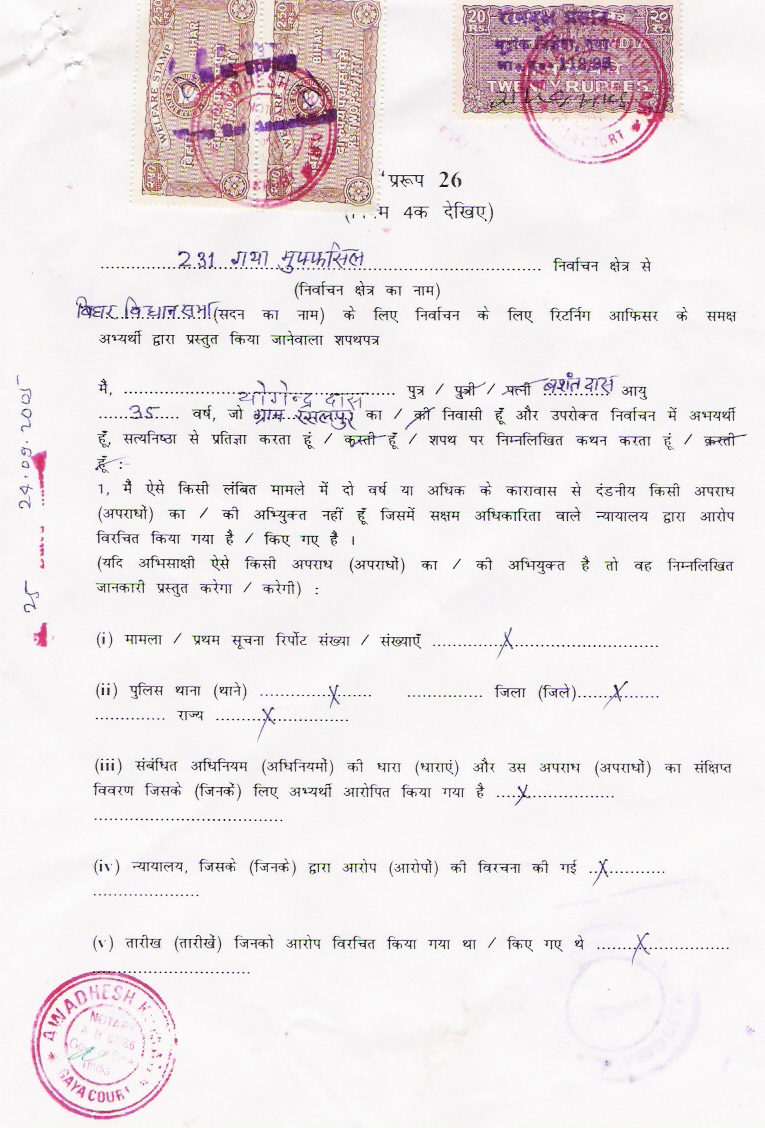 WELFARE STAMP
BIHAR
2.50
WELFARE
BIHAR
2.50
20
RS.
INDIA
२० रु.
TWENTY RUPEES
प्ररूप 26
4क देखिए)
231 गया मुफ्फसिल निर्वाचन क्षेत्र से
(निर्वाचन क्षेत्र का नाम)
बिहार विधान सभा (सदन का नाम) के लिए निर्वाचन के लिए रिटर्निग आफिसर के समक्ष
अभ्यर्थी द्वारा प्रस्तुत किया जानेवाला शपथपत्र
मैं, योगेन्द्र दास पुत्र / पुत्री / पत्नी बसंत दास आयु
35 वर्ष, जो ग्राम रसलपुर का / की निवासी हूँ और उपरोक्त निर्वाचन में अभयर्थी
हूँ, सत्यनिष्ठा से प्रतिज्ञा करता हूं / करती हूँ / शपथ पर निम्नलिखित कथन करता हूं / करती
हूँ :-
1, मैं ऐसे किसी लंबित मामले में दो वर्ष या अधिक के कारावास से दंडनीय किसी अपराध
(अपराधों) का / की अभियुक्त नहीं हूँ जिसमें सक्षम अधिकारिता वाले न्यायालय द्वारा आरोप
विरचित किया गया है / किए गए है ।
(यदि अभिसाक्षी ऐसे किसी अपराध (अपराधों) का / की अभियुक्त है तो वह निम्नलिखित
जानकारी प्रस्तुत करेगा / करेगी) :
(i) मामला / प्रथम सूचना रिर्पोट संख्या / संख्याएँ ........X........
(ii) पुलिस थाना (थाने) ........X........ जिला (जिले)....X....
राज्य ......X......
(iii) संबंधित अधिनियम (अधिनियमों) की धारा (धाराएं) और उस अपराध (अपराधों) का संक्षिप्त
विवरण जिसके (जिनके) लिए अभ्यर्थी आरोपित किया गया है ....X....
(iv) न्यायालय, जिसके (जिनके) द्वारा आरोप (आरोपों) की विरचना की गई ..X..
(v) तारीख (तारीखें) जिनको आरोप विरचित किया गया था / किए गए थे ......X......
25
24.09.2005
AWADHESH
NOTARY
GAYA COURT